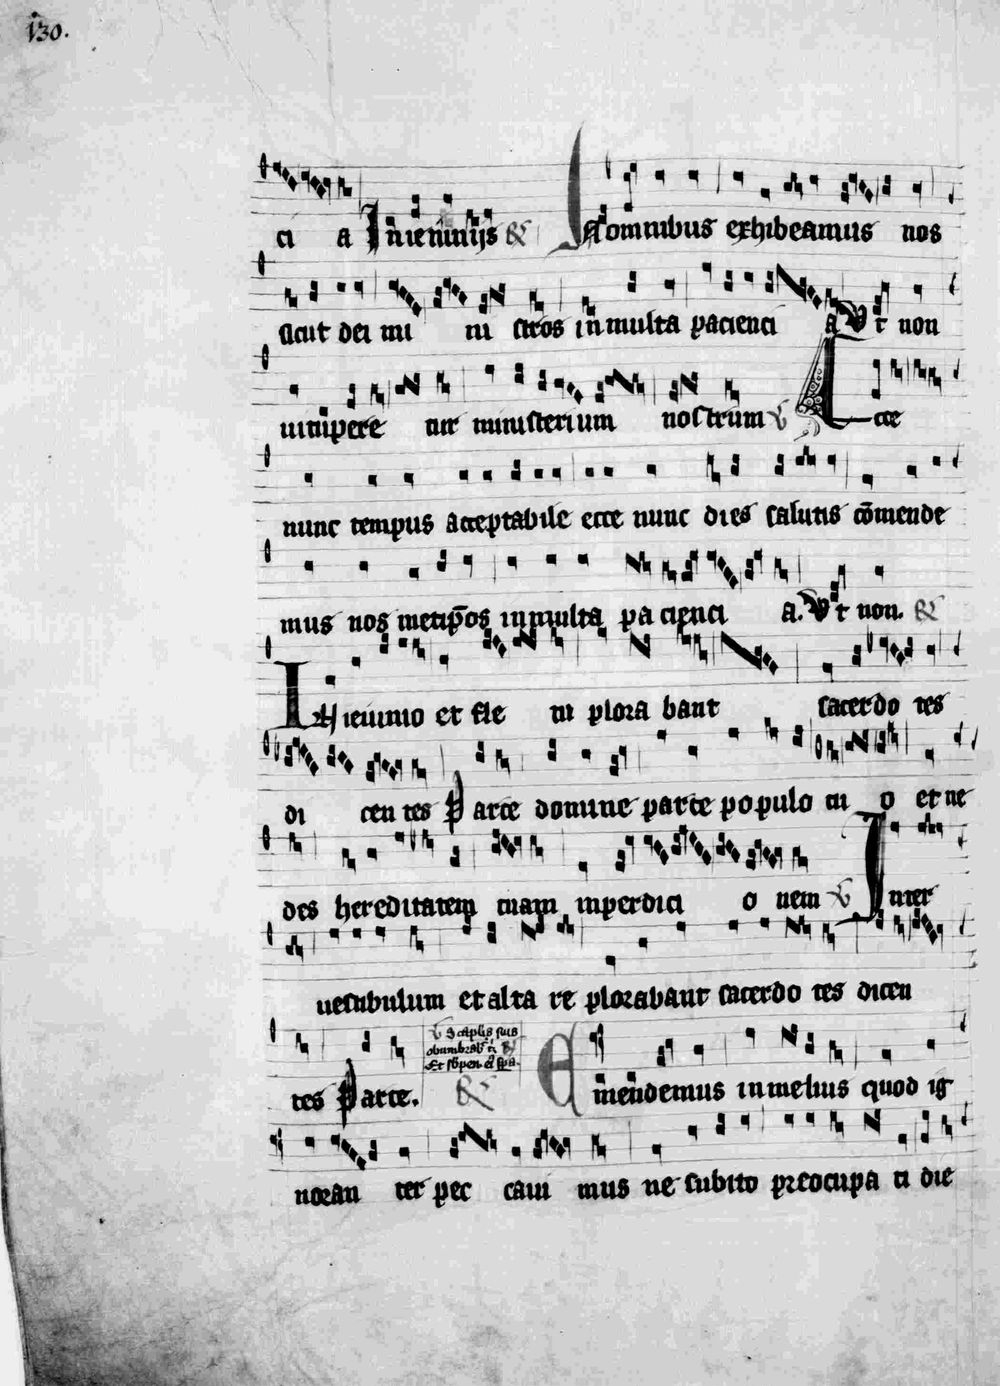 130.
ci a In ieiunijs & In omnibus exhibeamus nos
sicut dei mi ni stros in multa pacienci a Vt non
uitupere tur ministerium nostrum V Ecce
nunc tempus acceptabile ecce nunc dies salutis cōmende
mus nos metip̄os in multa pa cienci a. Vt non. &
In ieiunio et fle tu plora bant sacerdo tes
di cen tes Parce domine parce populo tu o et ne
des hereditatem tuam in perdici o nem V Inter
uestibulum et alta re plorabant sacerdo tes dicen
V Scaplis suis
obumbrab' t' &
Et sb pen. ei' spa.
tes Parce. & Emendemus in melius quod ig
noran ter pec caui mus ne subito preocupa ti die